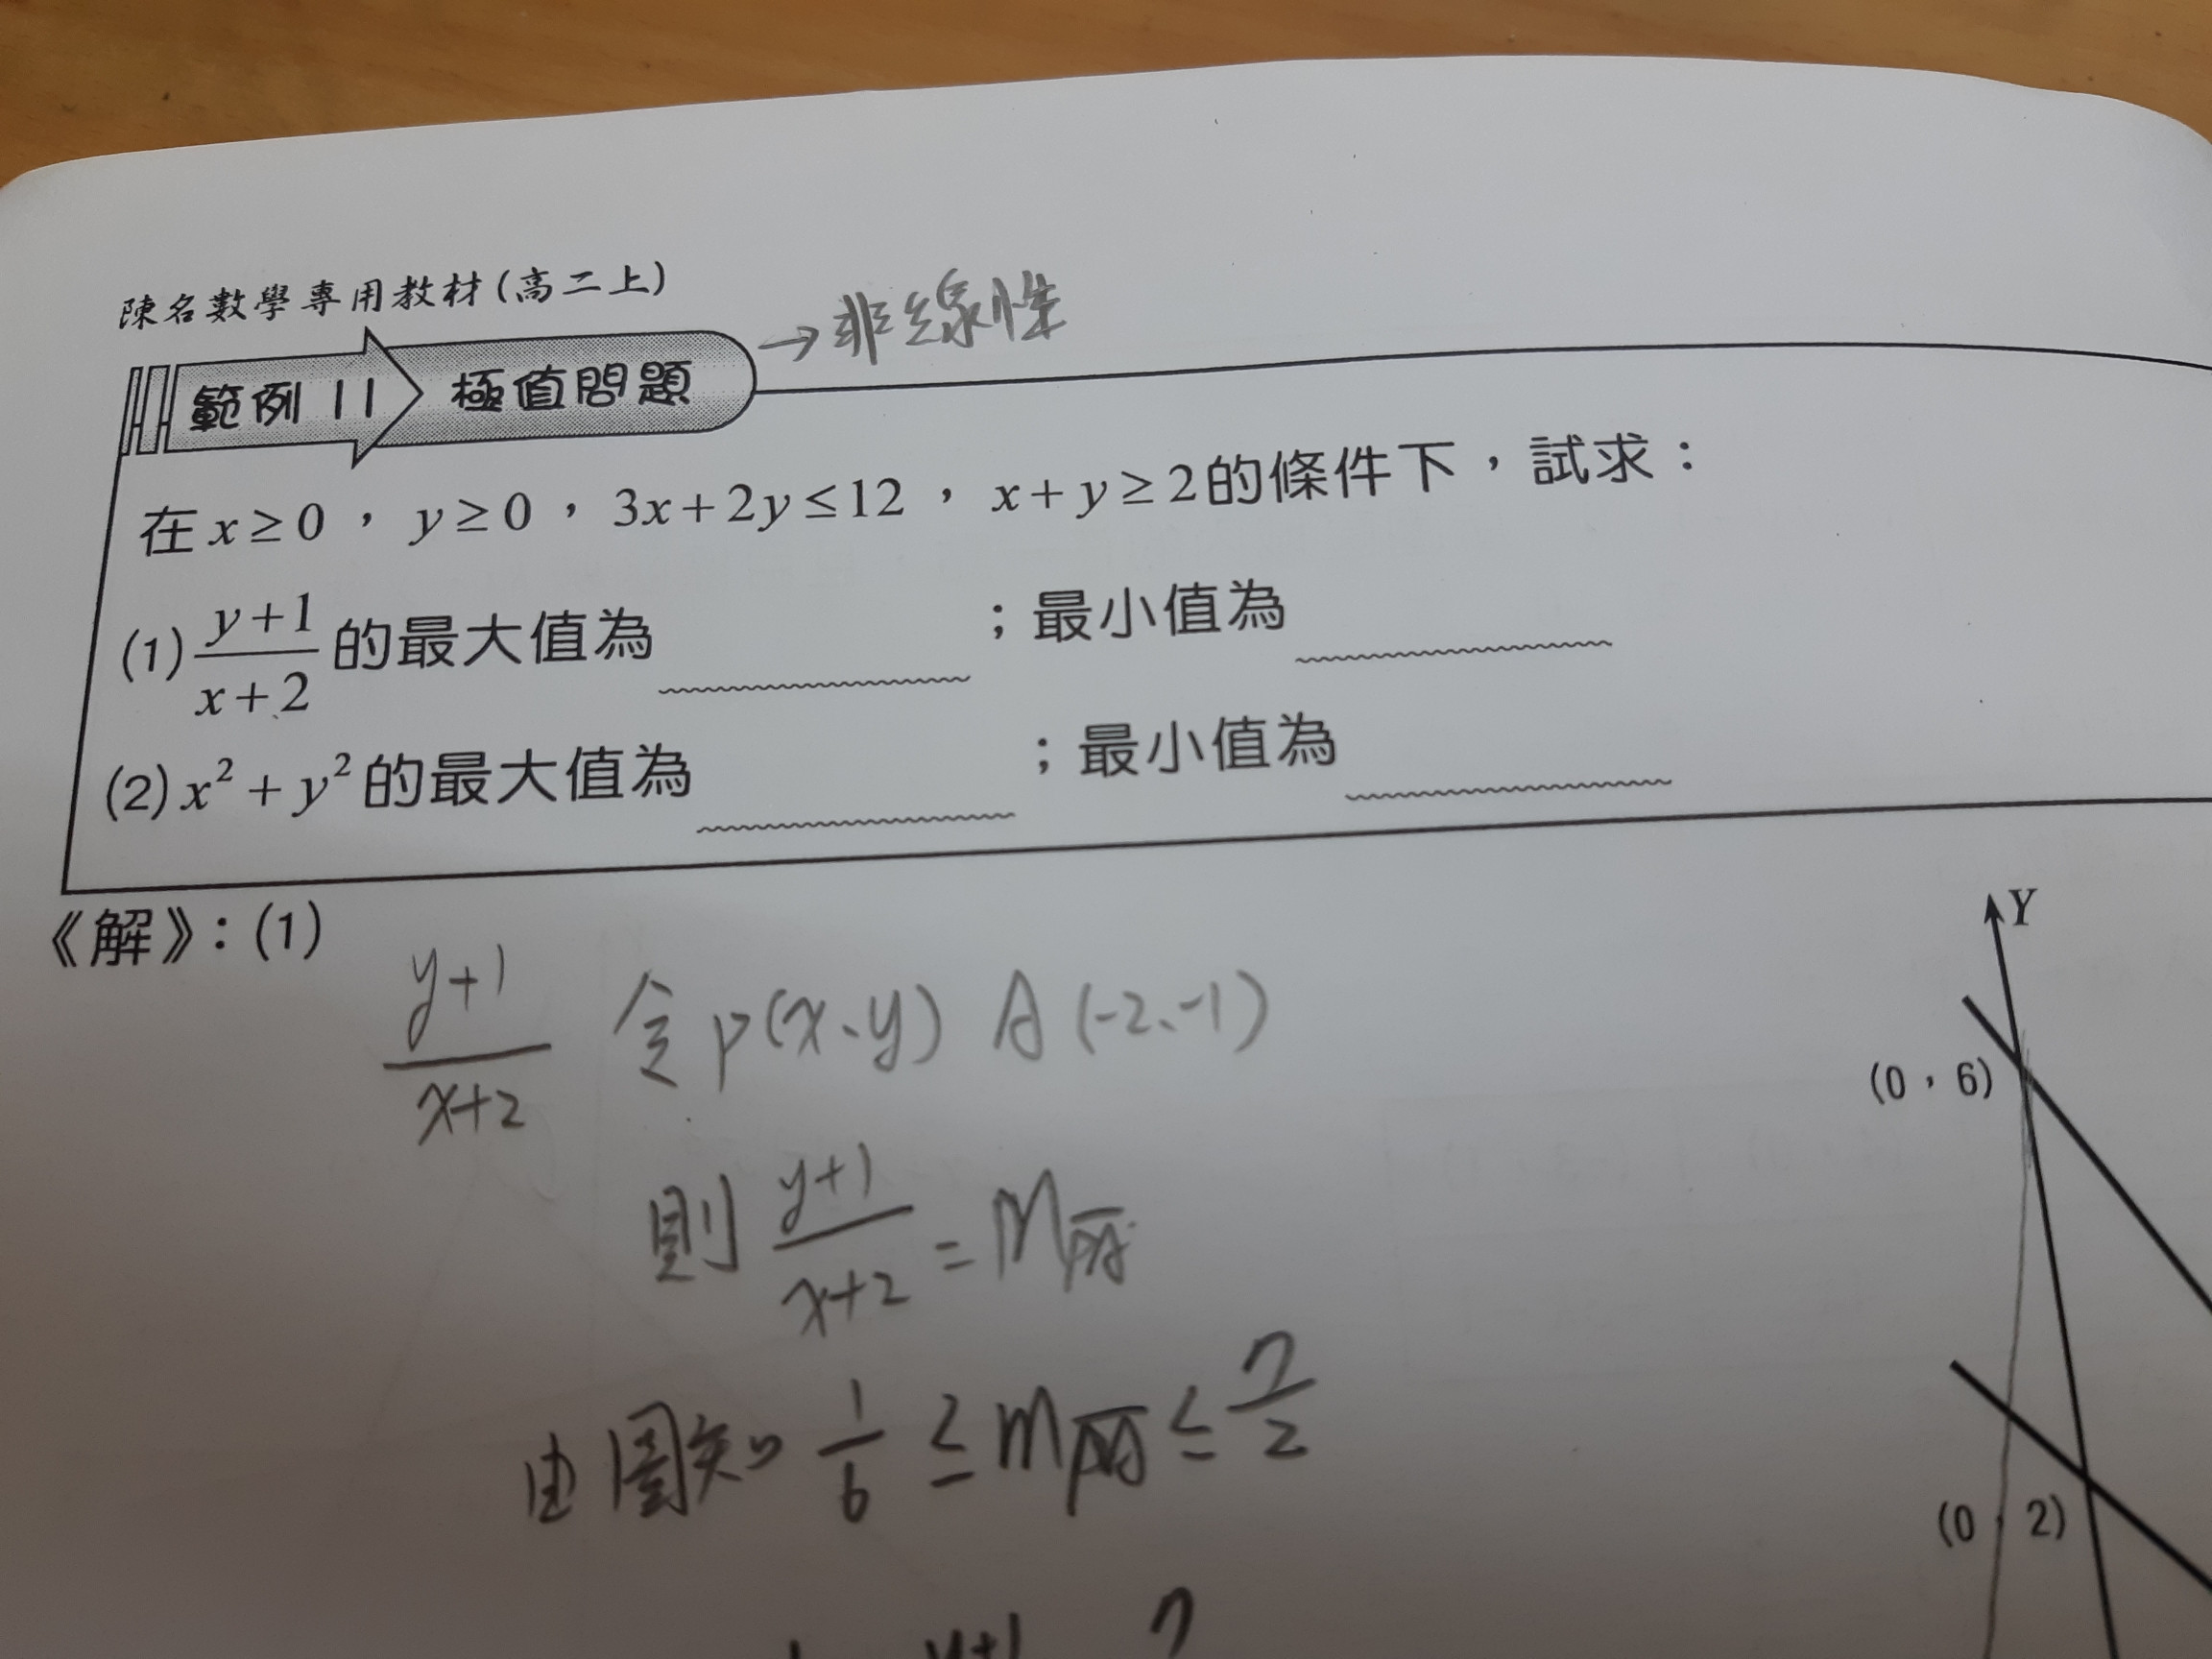 陳名數學專用教材(高二上)
→非線性
範例 11 極值問題
在 x ≥ 0 , y ≥ 0 , 3x + 2y ≤ 12 , x + y ≥ 2 的條件下,試求:
(1) \frac{y+1}{x+2} 的最大值為 ;最小值為
(2) x² + y² 的最大值為 ;最小值為
《解》:(1)
\frac{y+1}{x+2} 令 P(x、y) A(-2、-1)
則 \frac{y+1}{x+2} = m_{\overline{PA}}
由圖知 \frac{1}{6} ≤ m_{\overline{PA}} ≤ \frac{7}{2}
y+1 7
Y
(0,6)
(0,2)